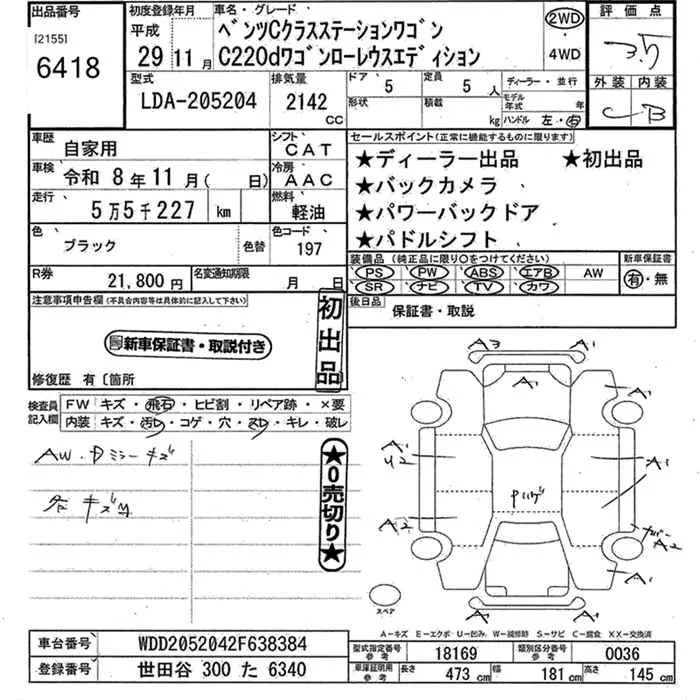 出品番号 初度登録年月 車名・グレード 評価点
[2155] 平成 ベンツCクラスステーションワゴン 2WD 3.5
6418 29 11月 C220dワゴンローレウスエディション 4WD
型式 排気量 ドア 定員 ディーラー・並行 外装 内装
LDA-205204 2142 CC 5 5人 モデル年式 年 C B
形状 積載 kg ハンドル 左・右
車歴 自家用 シフト CAT セールスポイント(正常に機能するものに限ります)
車検 令和 8年11月( 日) 冷房 AAC ★ディーラー出品 ★初出品
走行 5万5千227 km 燃料 軽油 ★バックカメラ
★パワーバックドア
色 ブラック 色替 色コード 197 ★パドルシフト
装備品(純正品に限り○をつけてください) 新車保証書
R券 21,800円 名変通知期限 月 日 PS PW ABS エアB AW 有・無
SR ナビ TV カワ
注意事項申告欄(不具合内容等は具体的に記入して下さい) 初出品 後日品 保証書・取説
新車保証書・取説付き
修復歴 有〔箇所
検査員記入欄 FW キズ・飛石・ヒビ割・リペア跡・×要
内装 キズ・汚れ・コゲ・穴・スレ・キレ・破レ
AW・Dミラーキズ
★0売切り★
A3
A1 A1 A1
A1 U2 A1
A2 A2
A1 A1
A1
スペア
A-キズ E-エクボ U-凹み W-補修跡 S-サビ C-腐食 XX-交換済
車台番号 WDD2052042F638384 型式指定番号 参考 18169 類別区分番号 参考 0036
登録番号 世田谷 300 た 6340 車庫証明用 参考 長さ 473cm 幅 181cm 高さ 145cm